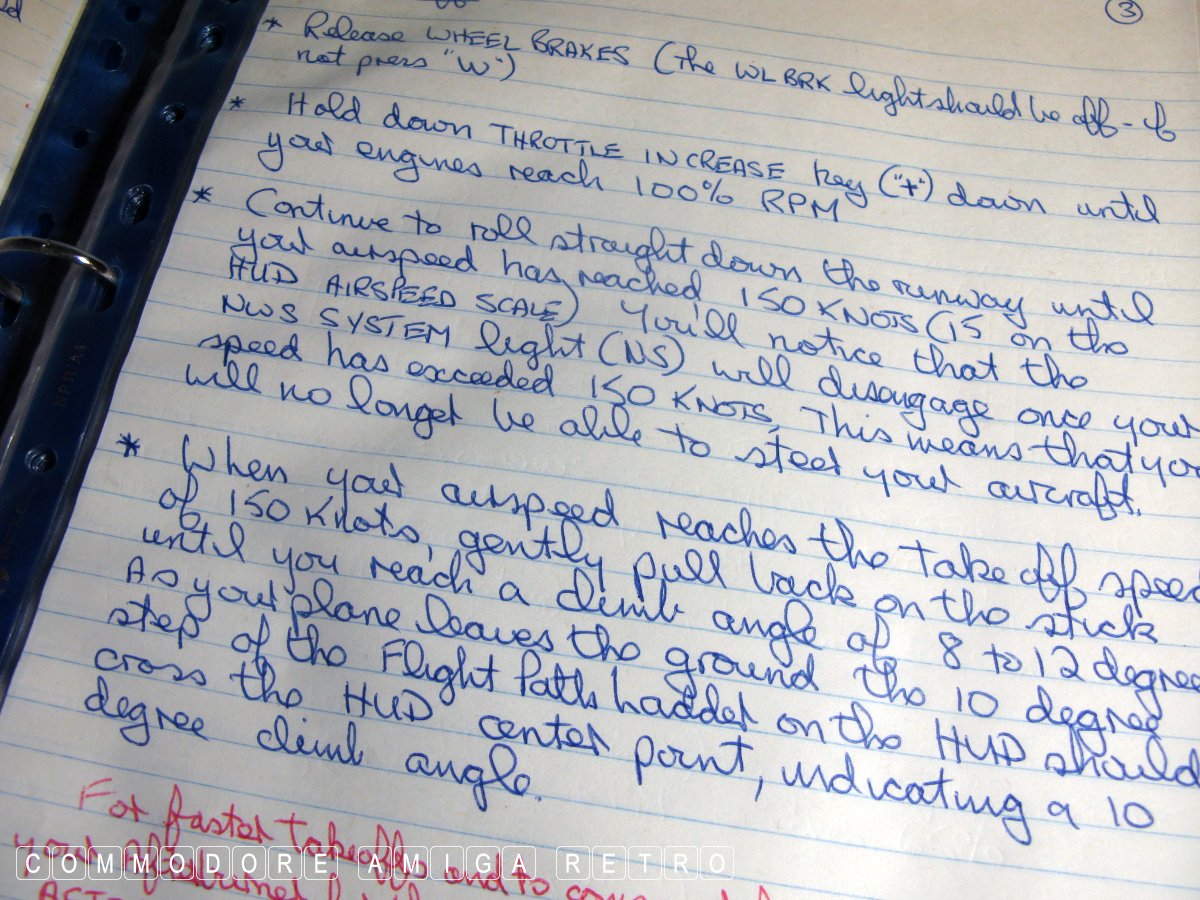 3
* Release WHEEL BRAKES (The WL BRK light should be off - if
not press "W")
* Hold down THROTTLE INCREASE key ("+") down until
your engines reach 100% RPM
* Continue to roll straight down the runway until
your airspeed has reached 150 KNOTS (15 on the
HUD AIRSPEED SCALE) You'll notice that the
NWS SYSTEM light (NS) will disengage once your
speed has exceeded 150 KNOTS, This means that you
will no longer be able to steer your aircraft.
* When your airspeed reaches the take off speed
of 150 Knots, gently pull back on the stick
until you reach a climb angle of 8 to 12 degree
As your plane leaves the ground the 10 degree
step of the Flight Path ladder on the HUD should
cross the HUD center point, indicating a 10
degree climb angle.
For faster takeoffs and to
your afterburner
COMMODORE AMIGA RETRO